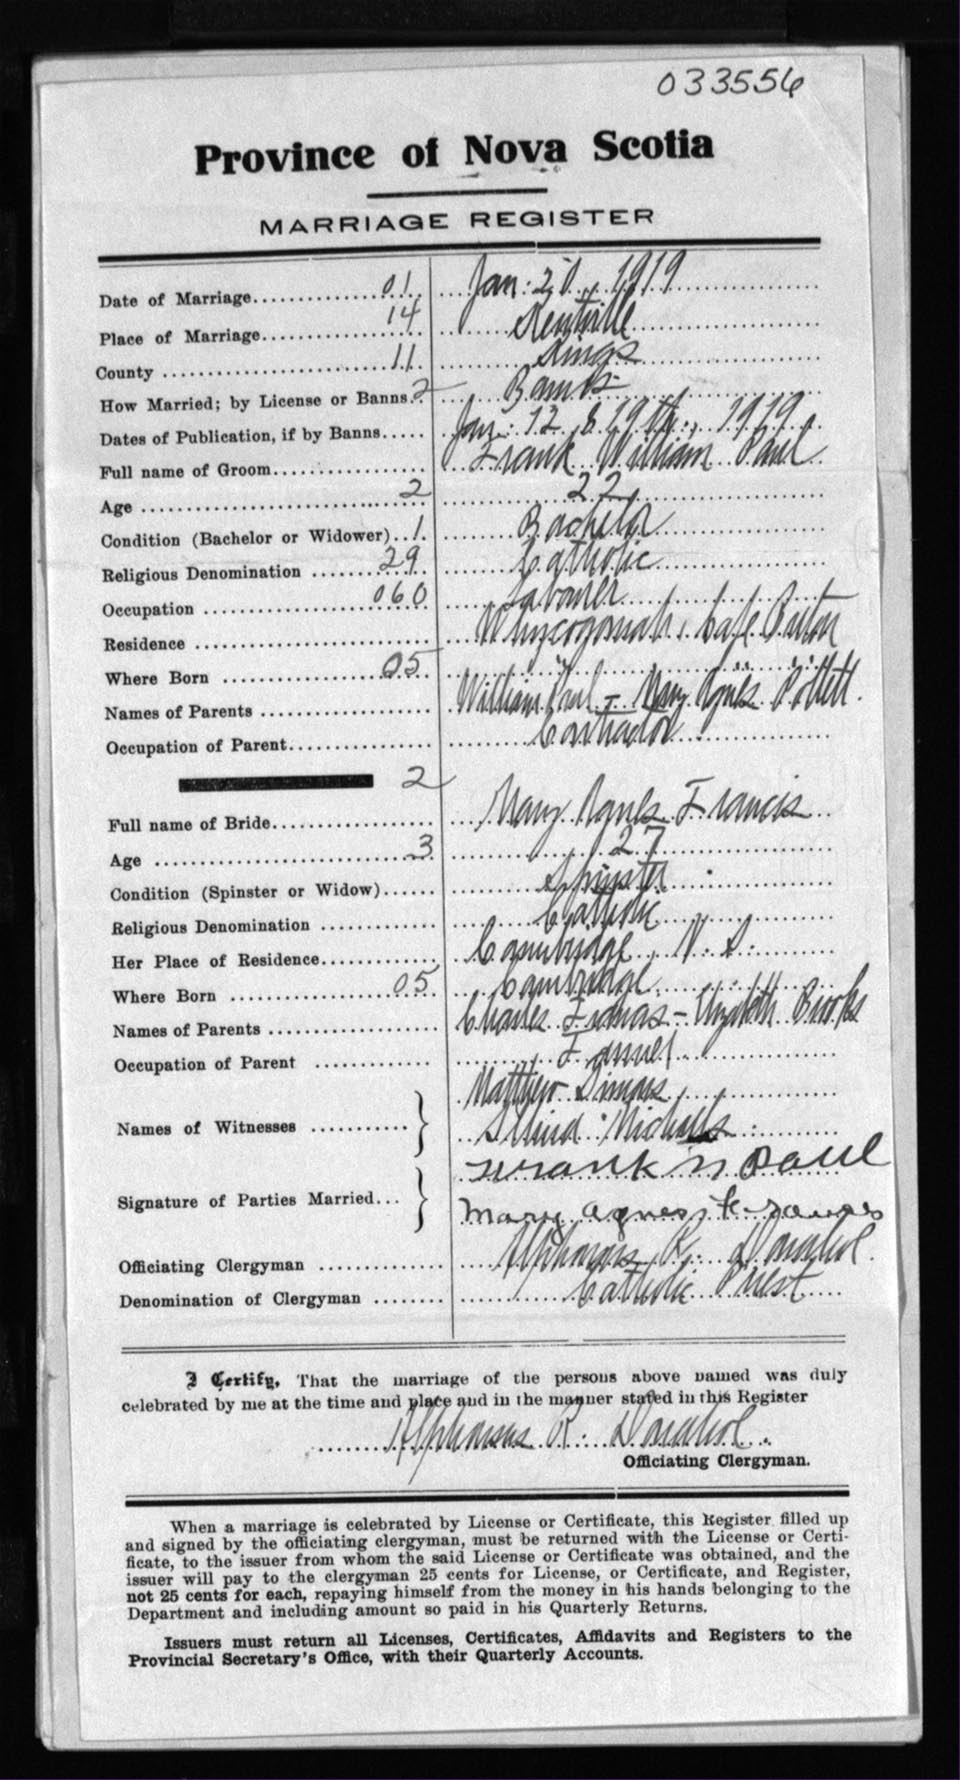 033556
Province of Nova Scotia
MARRIAGE REGISTER
Date of Marriage 01 Jan: 20, 1919
Place of Marriage 14 Kentville
County 11 Kings
How Married; by License or Banns. 2 Banns
Dates of Publication, if by Banns Jan: 12 & 19th, 1919.
Full name of Groom Frank William Paul
Age 2 22
Condition (Bachelor or Widower) 1 Bachelor
Religious Denomination 29 Catholic
Occupation 060 Labourer
Residence Whycocomah, Cape Breton
Where Born 05 " " "
Names of Parents William Paul - Mary Agnes
Occupation of Parent Contractor
2
Full name of Bride Mary Agnes Francis
Age 3 27
Condition (Spinster or Widow) Spinster
Religious Denomination Catholic
Her Place of Residence Cambridge, N. S.
Where Born 05 Cambridge
Names of Parents Charles Francis - Elizabeth Brooks
Occupation of Parent Farmer
Matthew
Names of Witnesses
Nicholls
Frank W Paul
Signature of Parties Married
Mary agnes francis
Officiating Clergyman Alphonsus R. Donahoe.
Denomination of Clergyman Catholic Priest
I Certify, That the marriage of the persons above named was duly
celebrated by me at the time and place and in the manner stated in this Register
Alphonsus R. Donahoe.
Officiating Clergyman.
When a marriage is celebrated by License or Certificate, this Register filled up
and signed by the officiating clergyman, must be returned with the License or Certi-
ficate, to the issuer from whom the said License or Certificate was obtained, and the
issuer will pay to the clergyman 25 cents for License, or Certificate, and Register,
not 25 cents for each, repaying himself from the money in his hands belonging to the
Department and including amount so paid in his Quarterly Returns.
Issuers must return all Licenses, Certificates, Affidavits and Registers to the
Provincial Secretary's Office, with their Quarterly Accounts.